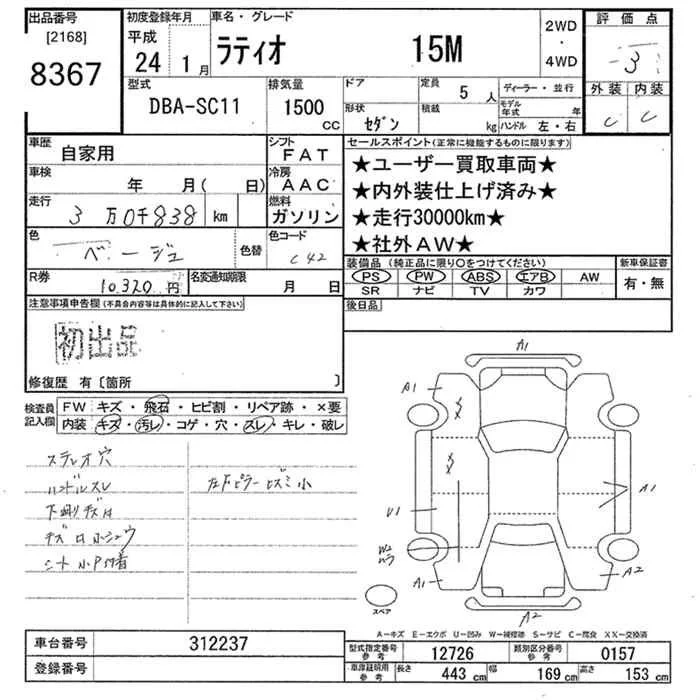 出品番号
[2168]
8367
初度登録年月
平成
24 1月
車名・グレード
ラティオ 15M
2WD
・
4WD
評価点
3
外装 内装
C C
型式
DBA-SC11
排気量
1500
CC
ドア
形状
セダン
定員
5人
積載
kg
ディーラー・並行
モデル年式 年
ハンドル 左・右
車歴
自家用
シフト
FAT
車検
年 月( 日)
冷房
AAC
走行
3万0千838 km
燃料
ガソリン
色
ベージュ
色替
色コード
C42
R券
10,320円
名変通知期限
月 日
セールスポイント(正常に機能するものに限ります)
★ユーザー買取車両★
★内外装仕上げ済み★
★走行30000km★
★社外AW★
装備品(純正品に限り○をつけてください)
新車保証書
PS PW ABS エアB AW
有・無
SR ナビ TV カワ
後日品
注意事項申告欄(不具合内容等は具体的に記入して下さい)
初出品
修復歴 有〔箇所 〕
検査員記入欄
FW キズ・飛石・ヒビ割・リペア跡・×要
内装 キズ・汚レ・コゲ・穴・スレ・キレ・破レ
ステレオ穴
ハンドルスレ
左Fピラーヒズミ小
シート小P付着
A1
A1
A1
U1
W2
A1
A2
A2
スペア
A-キズ E-エクボ U-凹み W-補修跡 S-サビ C-腐食 XX-交換済
車台番号
312237
登録番号
型式指定番号
参考
12726
類別区分番号
参考
0157
車庫証明用
参考
長さ
443 cm
幅
169 cm
高さ
153 cm